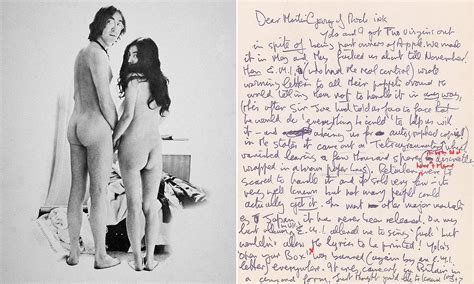 Dear Martin (Gary) of Rock ink
Yoko and I got Two Virgins out
in spite of being part owners of Apple. We made
it in May and they fucked us about till November.
Then E.M.I. (who had the real control) wrote
warning letters to all their puppets around the
world telling them not to handle it in any way.
(this after Sir Joe had told us face to face that
he would do 'everything he could' to help us with
it – and asking us for autographed copies)
In the states it came out on Tetragrammaton which
vanished leaving a few thousand
wrapped in a brown paper
scared to handle it and it sold very few – it
very well known but not many people could
actually get it. In most other major markets
eg Japan it has never been released. On my
last album E.M.I. allowed me to sing 'fuck' but
wouldn't allow the lyric to be printed! Yoko's
open your Box was banned (again by an E.M.I.
letter) everywhere. It only came out in Britain in
a censored form. Just thought you'd like to know